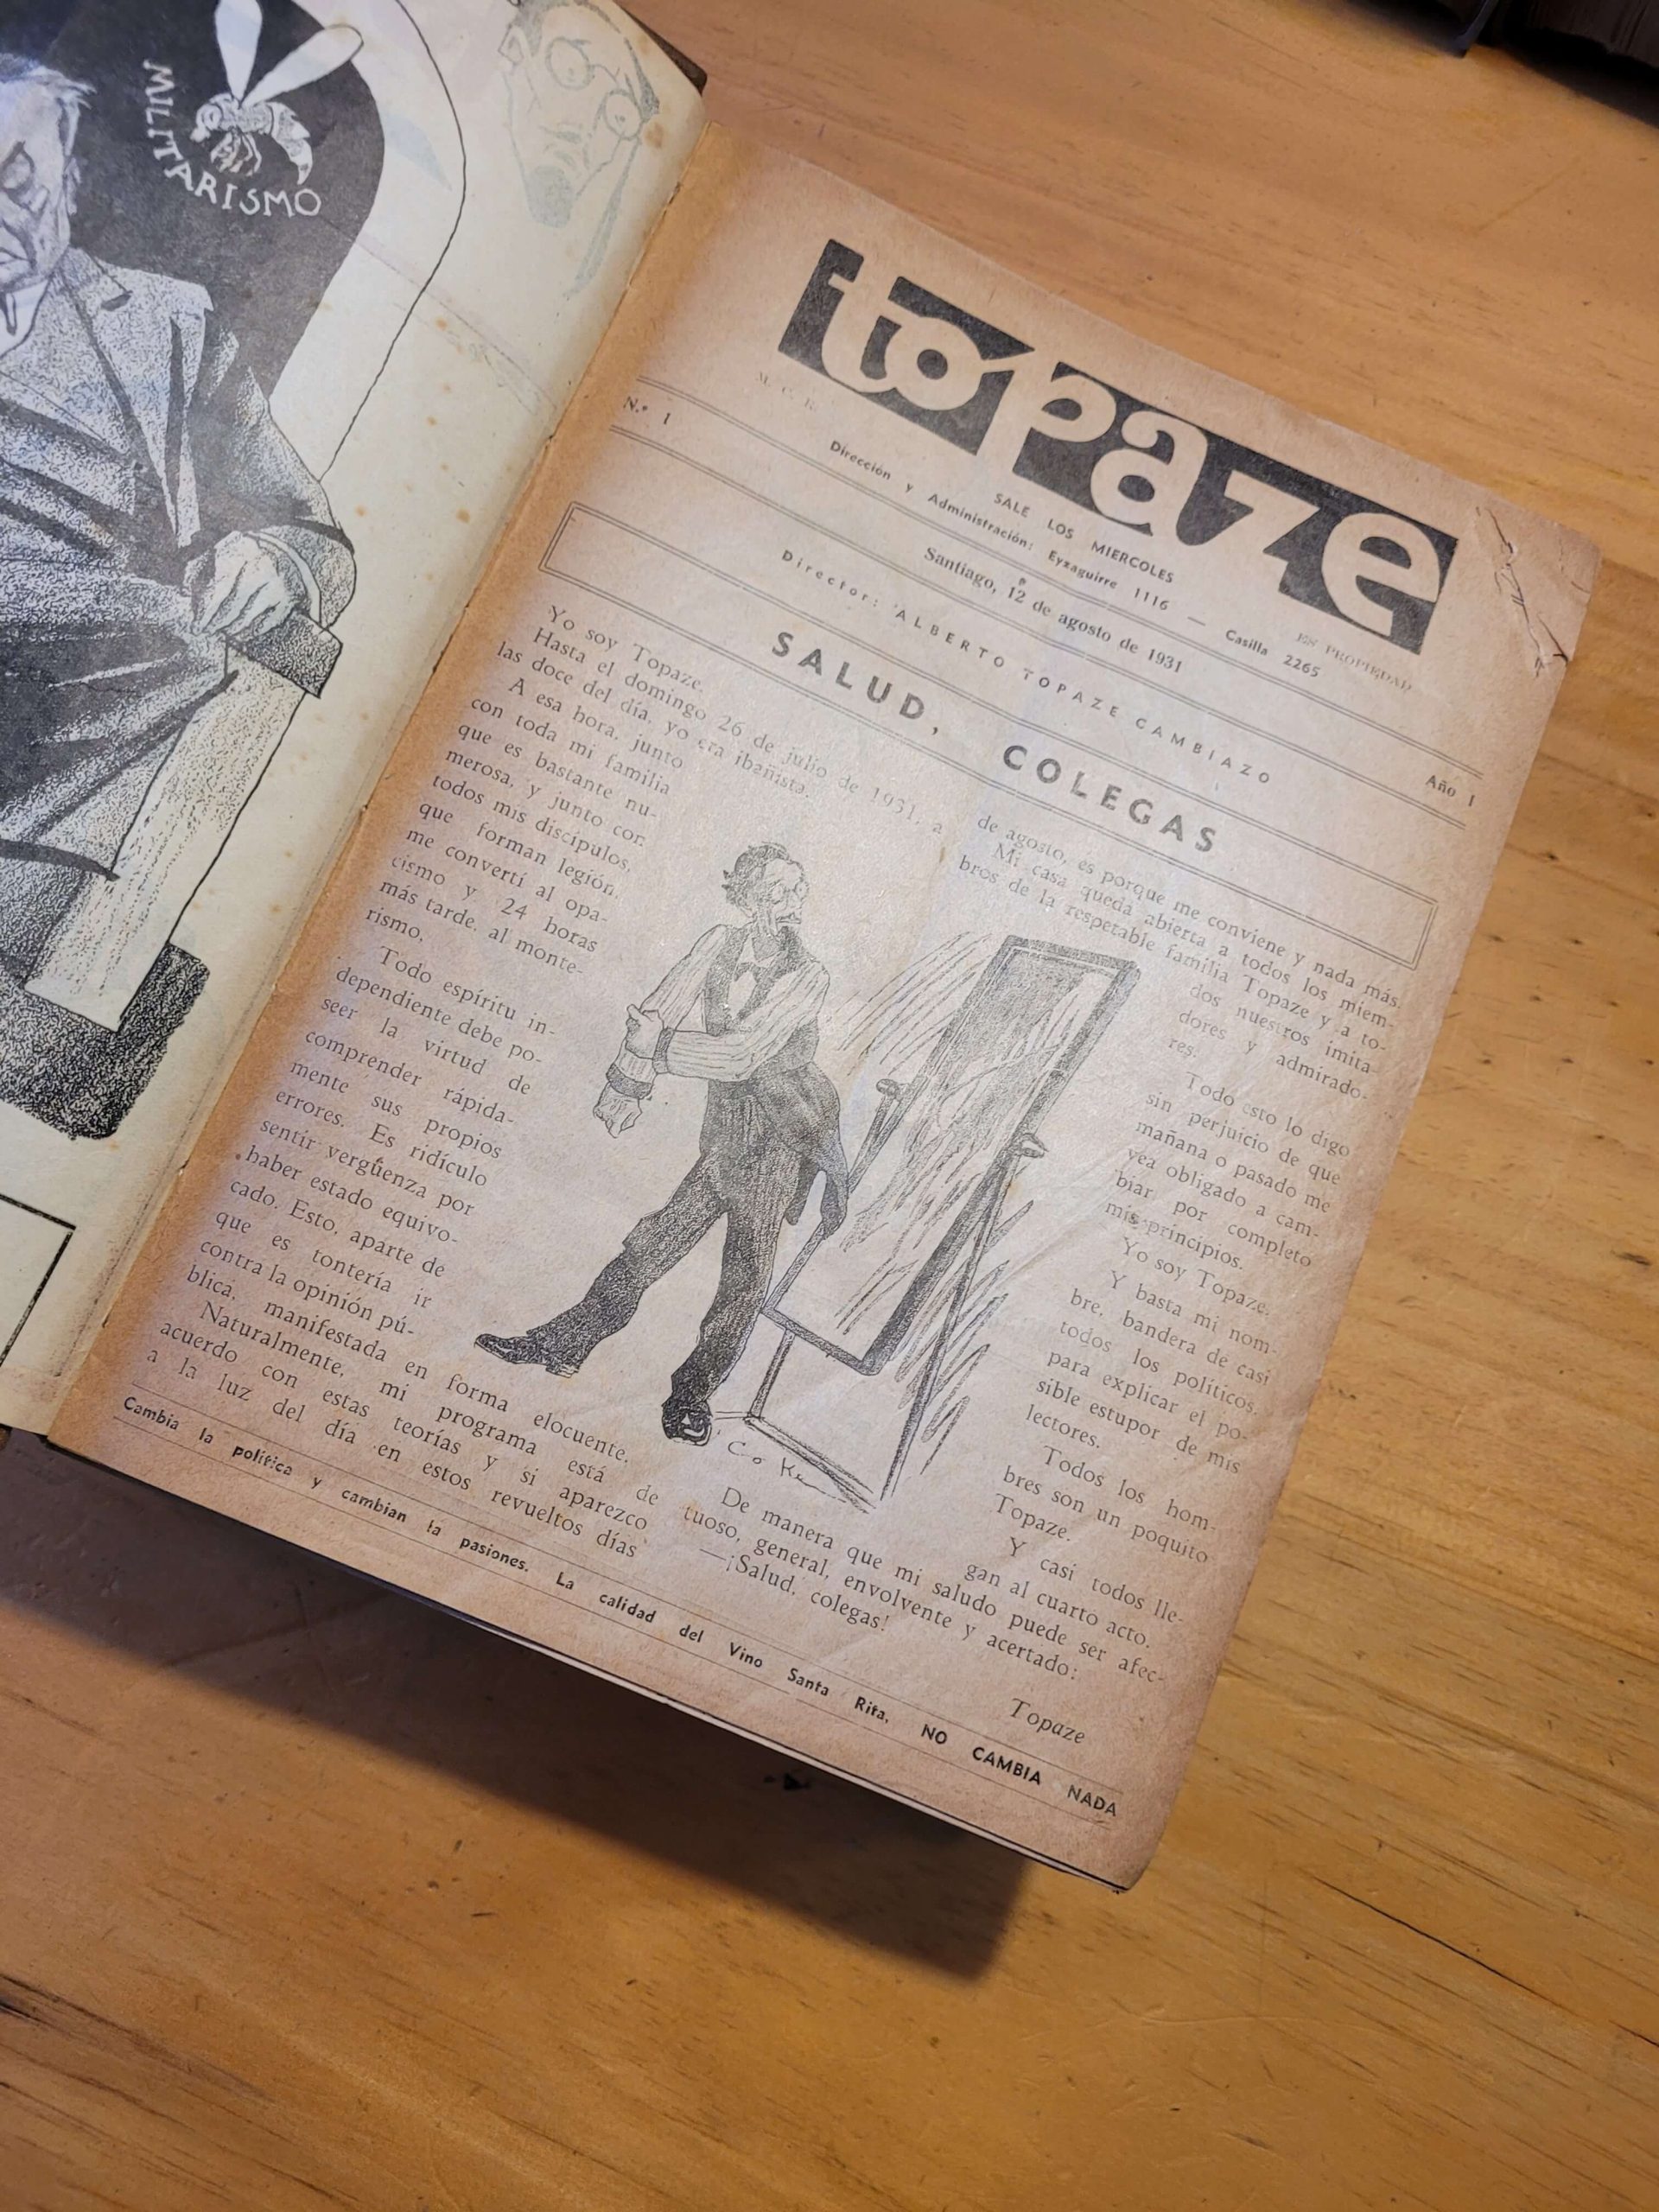 MILITARISMO
topaze
M. C. R.
ES PROPIEDAD
SALE LOS MIERCOLES
Dirección y Administración: Eyzaguirre 1116 — Casilla 2265
N.º 1
Santiago, 12 de agosto de 1931
Año I
Director: ALBERTO TOPAZE CAMBIAZO
SALUD, COLEGAS
Yo soy Topaze.
Hasta el domingo 26 de julio de 1931, a
las doce del día, yo era ibañista.
A esa hora, junto
con toda mi familia
que es bastante nu-
merosa, y junto con
todos mis discípulos,
que forman legión,
me convertí al opa-
cismo y 24 horas
más tarde, al monte-
rismo.
Todo espíritu in-
dependiente debe po-
seer la virtud de
comprender rápida-
mente sus propios
errores. Es ridículo
sentir vergüenza por
haber estado equivo-
cado. Esto, aparte de
que es tontería ir
contra la opinión pú-
blica, manifestada en forma elocuente.
Naturalmente, mi programa está de
acuerdo con estas teorías y si aparezco
a la luz del día en estos revueltos días
de agosto, es porque me conviene y nada más.
Mi casa queda abierta a todos los miem-
bros de la respetable familia Topaze y a to-
dos nuestros imita-
dores y admirado-
res.
Todo esto lo digo
sin perjuicio de que
mañana o pasado me
vea obligado a cam-
biar por completo
mis principios.
Yo soy Topaze.
Y basta mi nom-
bre, bandera de casi
todos los políticos,
para explicar el po-
sible estupor de mis
lectores.
Todos los hom-
bres son un poquito
Topaze.
Y casi todos lle-
gan al cuarto acto.
De manera que mi saludo puede ser afec-
tuoso, general, envolvente y acertado:
—¡Salud, colegas!
Topaze
Coke
Cambia la política y cambian la pasiones. La calidad del Vino Santa Rita, NO CAMBIA NADA